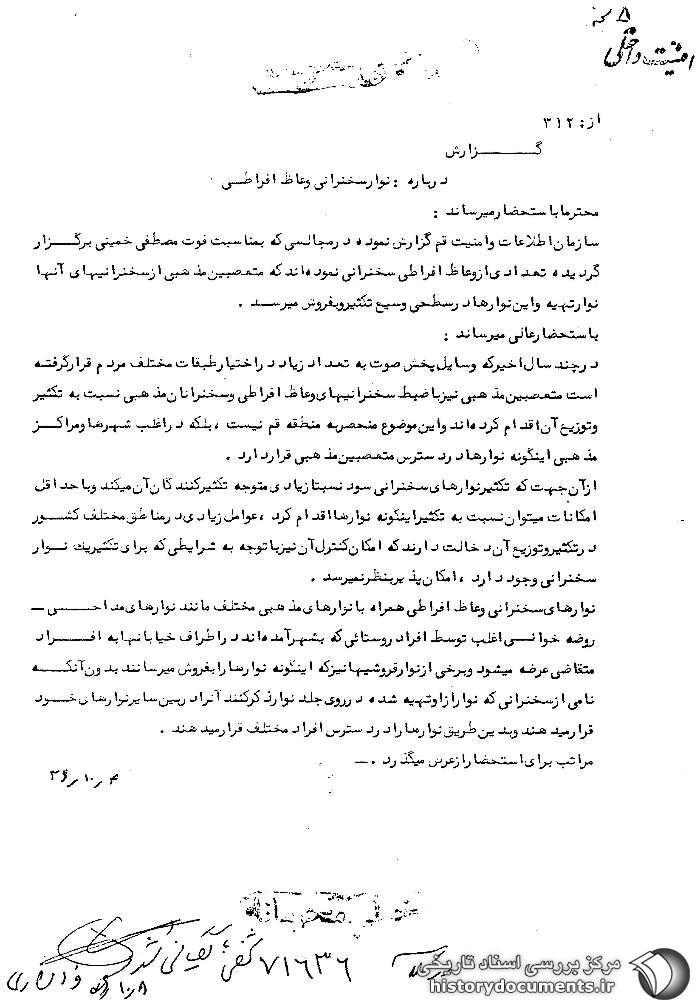 امنیت داخلی
از: ۳۱۲
گـــــــزارش
درباره : نوارسخنرانی وعاظ افراطــی
محترما باستحضارمیرساند :
سازمان اطلاعات وامنیت قم گزارش نموده درمجالسی که بمناسبت فوت مصطفی خمینی برگـــزار
گردیده تعدادی ازوعاظ افراطی سخنرانی نموده اند که متعصبین مذهبی ازسخنرانیهای آنهـا
نوارتهیه واین نوارها درسطحی وسیع تکثیروبفروش میرســد .
باستحضارعالی میرساند :
درچند سال اخیرکه وسایل پخش صوت به تعداد زیاد دراختیارطبقات مختلف مردم قرارگرفته
است متعصبین مذهبی نیزباضبط سخنرانیهای وعاظ افراطی وسخنرانان مذهبی نسبت به تکثیر
وتوزیع آن اقدام کرده اند واین موضوع منحصربه منطقه قم نیست ، بلکه دراغلب شهرها ومراکـز
مذهبی اینگونه نوارها دردسترس متعصبین مذهبی قراردارد .
ازآن جهت که تکثیرنوارهای سخنرانی سود نسبتا زیادی متوجه تکثیرکنندگان آن میکند وباحداقل
امکانات میتوان نسبت به تکثیراینگونه نوارها اقدام کرد ، عوامل زیادی درمناطق مختلف کشــور
درتکثیروتوزیع آن دخالت دارند که امکان کنترل آن نیزباتوجه به شرایطی که برای تکثیریك نـوار
سخنرانی وجود دارد ، امکان پذیربنظرنمیرسد .
نوارهای سخنرانی وعاظ افراطی همراه با نوارهای مذهبی مختلف مانند نوارهای مداحـــی ـ
روضه خوانــی اغلب توسط افراد روستائی که بشهرآمده اند دراطراف خیابانها به افـــراد
متقاضی عرضه میشود وبرخی ازنوارفروشیها نیزکه اینگونه نوارها را بفروش میرسانند بدون آنکــه
نامی ازسخنرانی که نواراز او تهیه شده درروی جلد نوارذکرکنند آنرا دربین سایرنوارهای خــود
قرارمیدهند وبدین طریق نوارها را دردسترس افراد مختلف قرارمیدهند .
مراتب برای استحضارازعرض میگذرد .ـ
۴ر۱۰ر۳۶
۷۱۶۳۶
مرکز بررسی اسناد تاریخی
historydocuments.ir